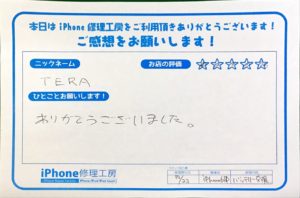 本日は iPhone 修理工房をご利用頂きありがとうございます!
ご感想をお願いします!
ニックネーム
お店の評価
TERA
ひとことお願いします!
ありがとうございました。
iPhone修理工房